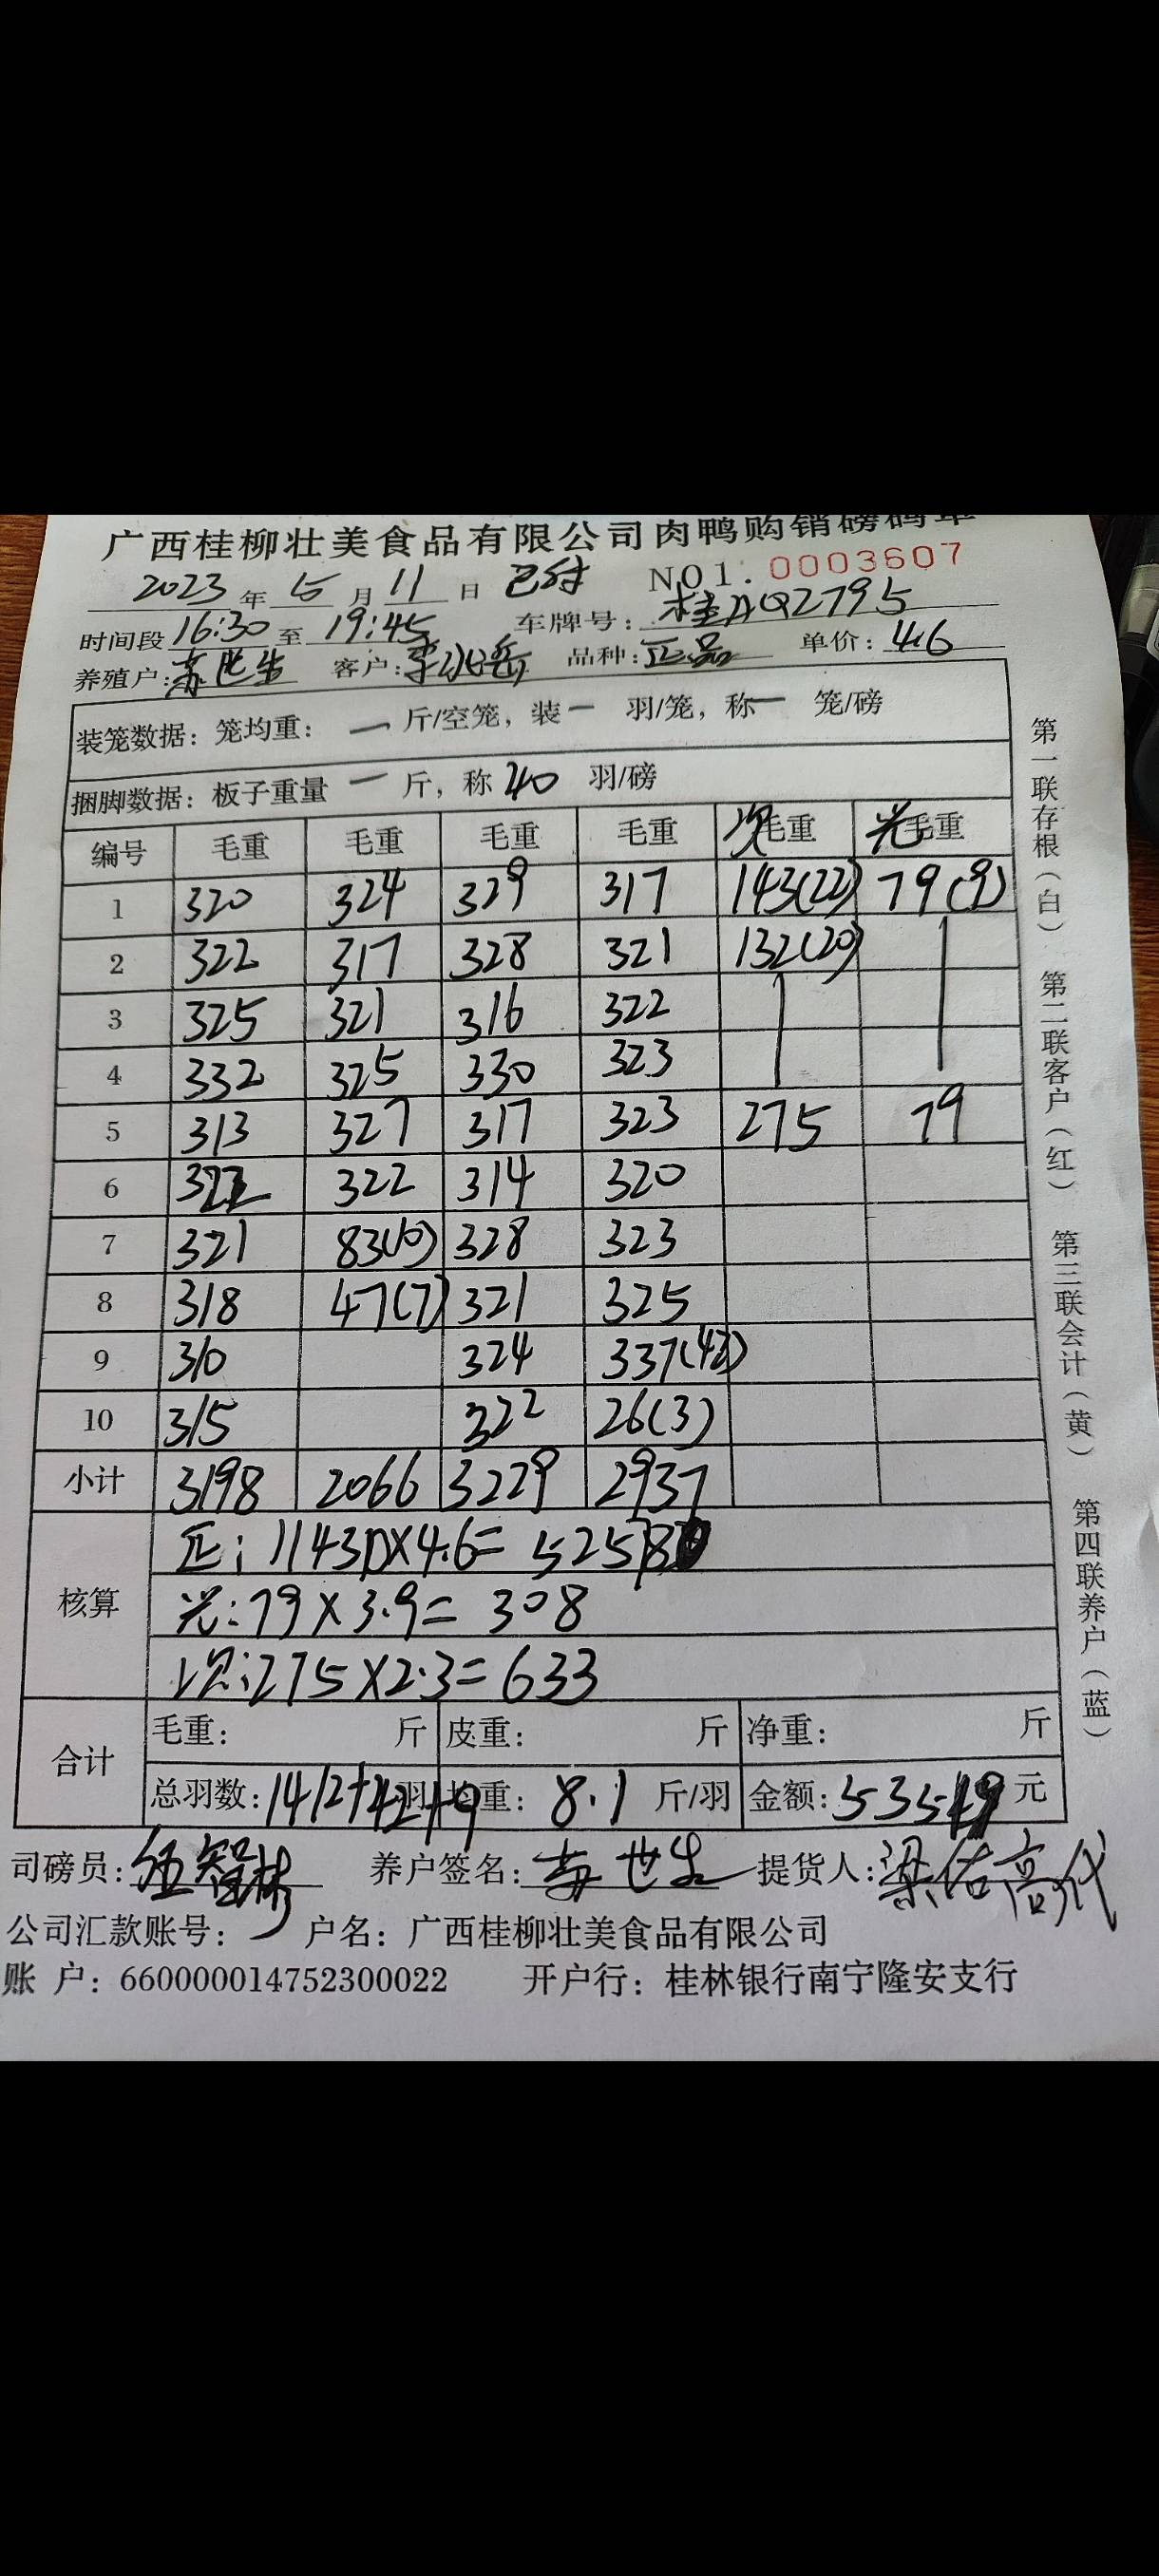 广西桂柳壮美食品有限公司肉鸭购销磅码单
2023年5月11日 已付 NO1.0003607
时间段16:30至19:45 车牌号:桂AQ2795
养殖户:苏世生 客户:李 品种:正品 单价:4.6
装笼数据:笼均重: — 斤/空笼,装— 羽/笼,称— 笼/磅
捆脚数据:板子重量 — 斤,称 40 羽/磅
编号 毛重 毛重 毛重 毛重 次毛重 光毛重
1 320 324 329 317 143(22) 79(9)
2 322 317 328 321 132(20)
3 325 321 316 322
4 332 325 330 323
5 313 327 317 323 275 79
6 322 322 314 320
7 321 83(10) 328 323
8 318 47(7) 321 325
9 310 324 337(42)
10 315 322 26(3)
小计 3198 2066 3229 2937
核算
正:11430×4.6=52578
光:79×3.9=308
次:275×2.3=633
合计
毛重: 斤 皮重: 斤 净重: 斤
总羽数:1412+42+9羽 均重:8.1 斤/羽 金额:53519元
司磅员:伍智彬 养户签名:苏世生 提货人:梁佑高代
公司汇款账号: 户名:广西桂柳壮美食品有限公司
账 户:660000014752300022 开户行:桂林银行南宁隆安支行
第一联存根(白) 第二联客户(红) 第三联会计(黄) 第四联养户(蓝)